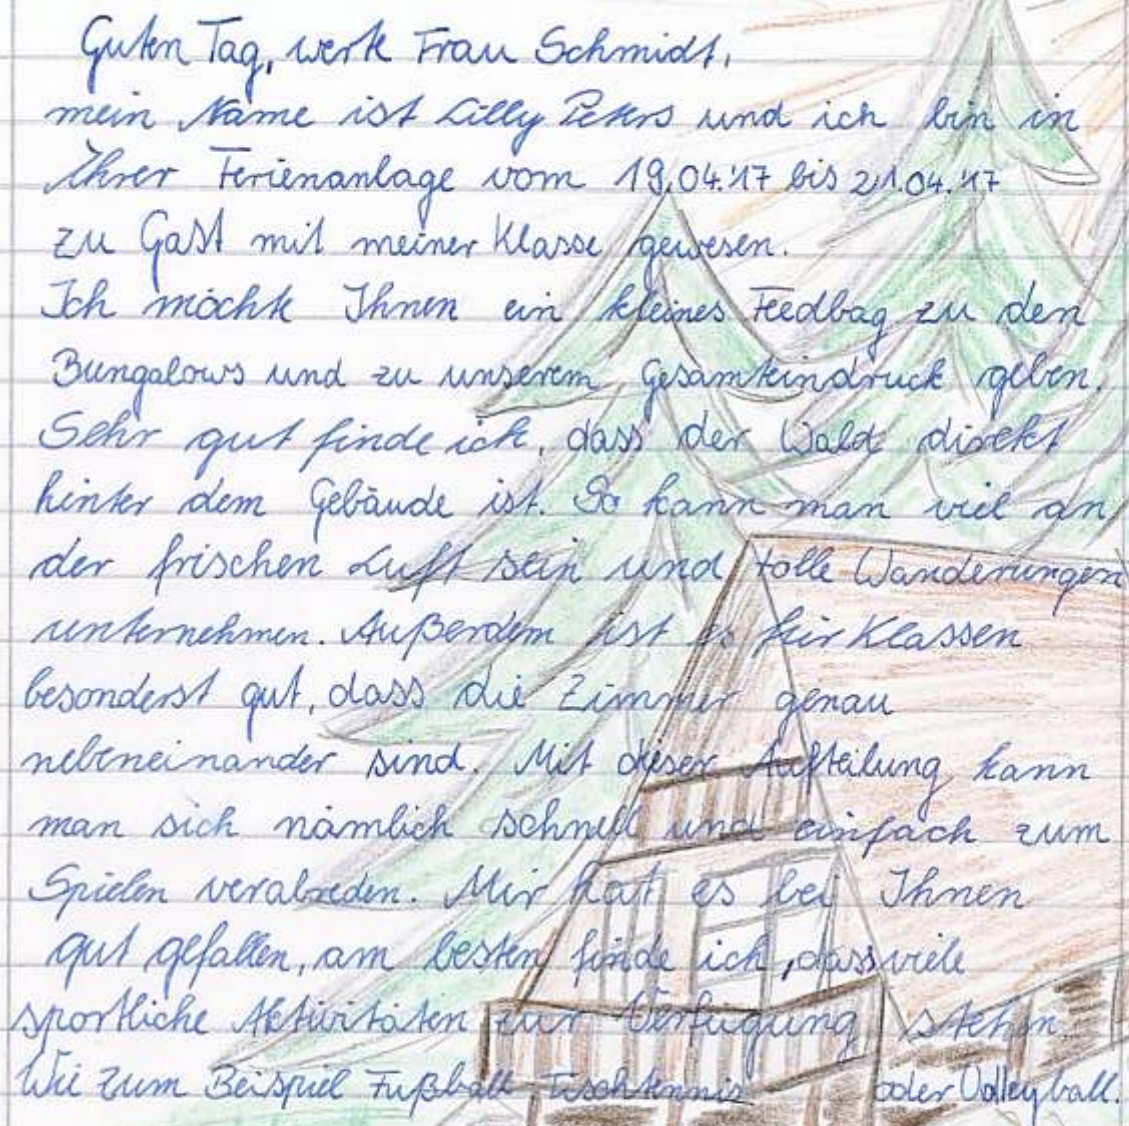 Guten Tag, werte Frau Schmidt,
mein Name ist Lilly Peters und ich bin in
Ihrer Ferienanlage vom 19.04.'17 bis 21.04.'17
zu Gast mit meiner Klasse gewesen.
Ich möchte Ihnen ein kleines Feedbag zu den
Bungalows und zu unserem Gesamteindruck geben.
Sehr gut finde ich, dass der Wald direkt
hinter dem Gebäude ist. So kann man viel an
der frischen Luft sein und tolle Wanderungen
unternehmen. Außerdem ist es für Klassen
besonderst gut, dass die Zimmer genau
nebeneinander sind. Mit dieser Aufteilung kann
man sich nämlich schnell und einfach zum
Spielen verabreden. Mir hat es bei Ihnen
gut gefallen, am besten finde ich, dass viele
sportliche Aktivitäten zur Verfügung stehen
Wie zum Beispiel Fußball, Tischtennis oder Volleyball.